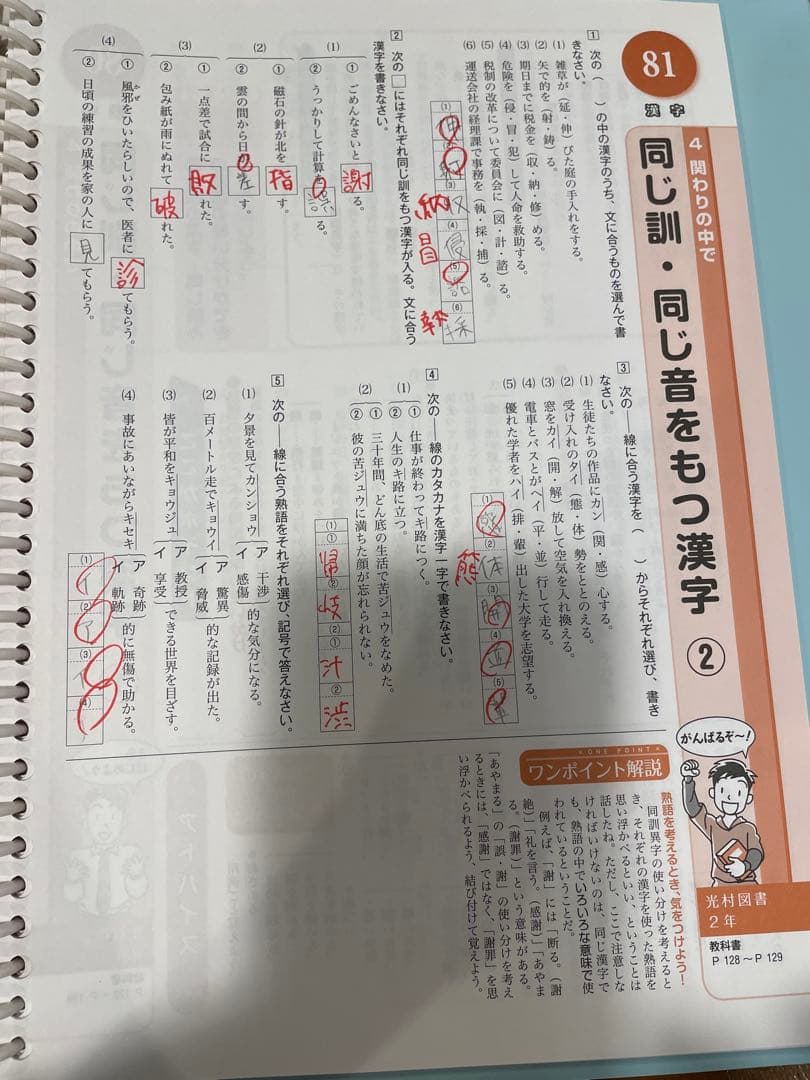 81
漢字
4 関わりの中で
同じ訓・同じ音をもつ漢字 ②
1 次の( )の中の漢字のうち、文に合うものを選んで書きなさい。
(1) 雑草が(延・伸)びた庭の手入れをする。
(2) 矢で的を(射・鋳)る。
(3) 期日までに税金を(収・納・修)める。
(4) 危険を(侵・冒・犯)して人命を救助する。
(5) 税制の改革について委員会に(図・計・諮)る。
(6) 運送会社の経理課で事務を(執・採・捕)る。
(1) 伸
(2) 射
(3) 収 納
(4) 侵 冒
(5) 諮
(6) 採
2 次の□にはそれぞれ同じ訓をもつ漢字が入る。文に合う漢字を書きなさい。
(1)
① ごめんなさいと謝る。
② うっかりして計算を誤る。
(2)
① 磁石の針が北を指す。
② 雲の間から日が差す。
(3)
① 一点差で試合に敗れた。
② 包み紙が雨にぬれて破れた。
(4)
① 風邪をひいたらしいので、医者に診てもらう。
かぜ
② 日頃の練習の成果を家の人に見てもらう。
3 次の――線に合う漢字を( )からそれぞれ選び、書きなさい。
(1) 生徒たちの作品にカン(関・感)心する。
(2) 受け入れのタイ(態・体)勢をととのえる。
(3) 窓をカイ(開・解)放して空気を入れ換える。
(4) 電車とバスとがヘイ(平・並)行して走る。
(5) 優れた学者をハイ(排・輩)出した大学を志望する。
(1)
(2) 体
(3) 開
(4) 並
(5) 輩
4 次の――線のカタカナを漢字一字で書きなさい。
(1)
① 仕事が終わってキ路につく。
② 人生のキ路に立つ。
(2)
① 三十年間、どん底の生活で苦ジュウをなめた。
② 彼の苦ジュウに満ちた顔が忘れられない。
(1) ① 帰
② 岐
(2) ① 汁
② 渋
5 次の――線に合う熟語をそれぞれ選び、記号で答えなさい。
(1) 夕景を見てカンショウ(ア 干渉 イ 感傷)的な気分になる。
(2) 百メートル走でキョウイ(ア 驚異 イ 脅威)的な記録が出た。
(3) 皆が平和をキョウジュ(ア 教授 イ 享受)できる世界を目ざす。
(4) 事故にあいながらキセキ(ア 奇跡 イ 軌跡)的に無傷で助かる。
(1) イ
(2) ア
(3) イ
(4)
がんばるぞ〜!
ONE POINT
ワンポイント解説
熟語を考えるとき、気をつけよう!
同訓異字の使い分けを考えるとき、それぞれの漢字を使った熟語を思い浮かべるといい、ということは話したね。ただし、ここで注意しなければいけないのは、同じ漢字でも、熟語の中でいろいろな意味で使われているということだ。
例えば、「謝」には「断る。(謝絶)」「礼を言う。(感謝)」「あやまる。(謝罪)」という意味がある。「あやまる」の「誤・謝」の使い分けを考えるときには、「感謝」ではなく、「謝罪」を思い浮かべられるよう、結び付けて覚えよう。
光村図書
2年
教科書
P 128〜P 129